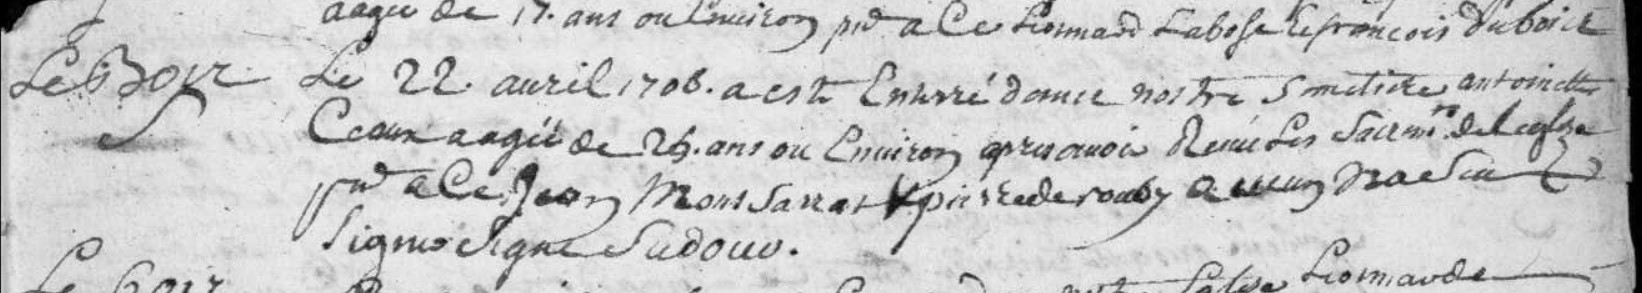 aagée de 17. ans ou Environ pnt a Ce Leonnard Labose & francois Duboict
Le Bois
Le 22. auril 1706. a este Enterré dans nostre Simetiere antoinette
aagée de 26. ans ou Environ apres avoir Receu Les Sacrmts de leglise
pnt a Ce Jean Montsarrat & pierre de rouby aucun Na Sceu
Signer Signe Sudour.
Le Leonnarde